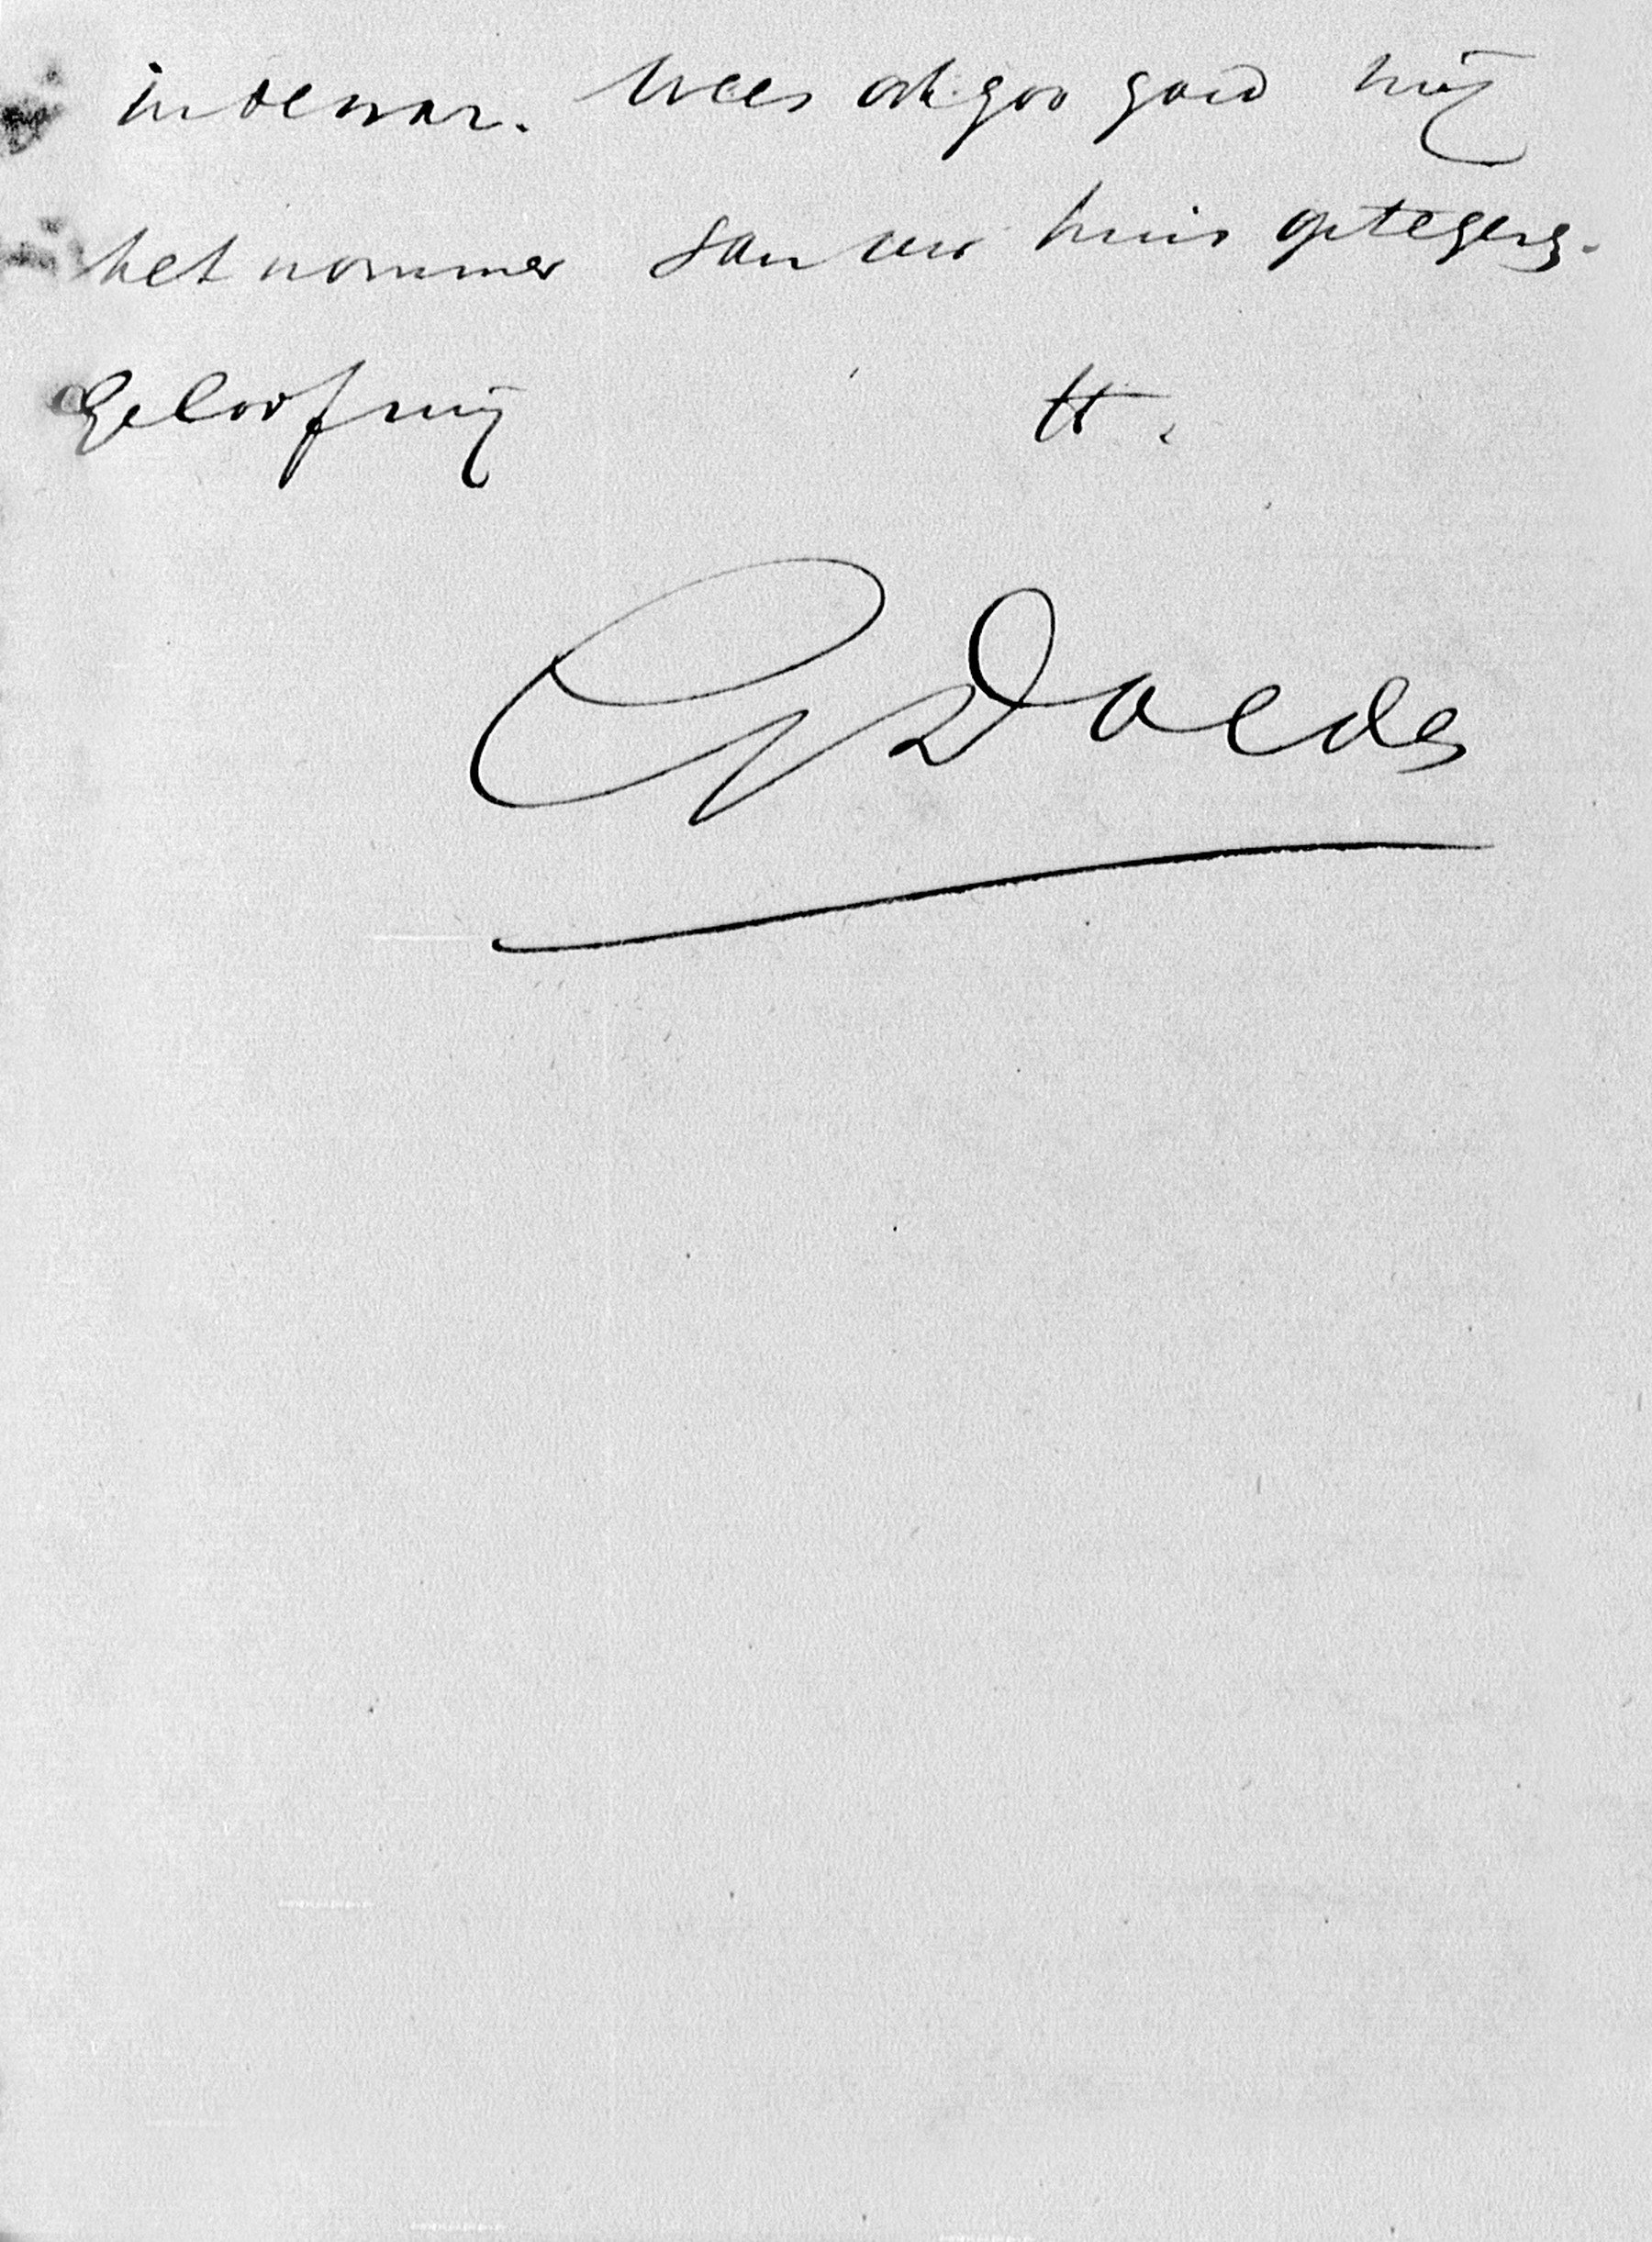 in de war. Wees ook zoo goed mij
het nommer van uw huis optegeven.
Geloof mij tt.
Doedes